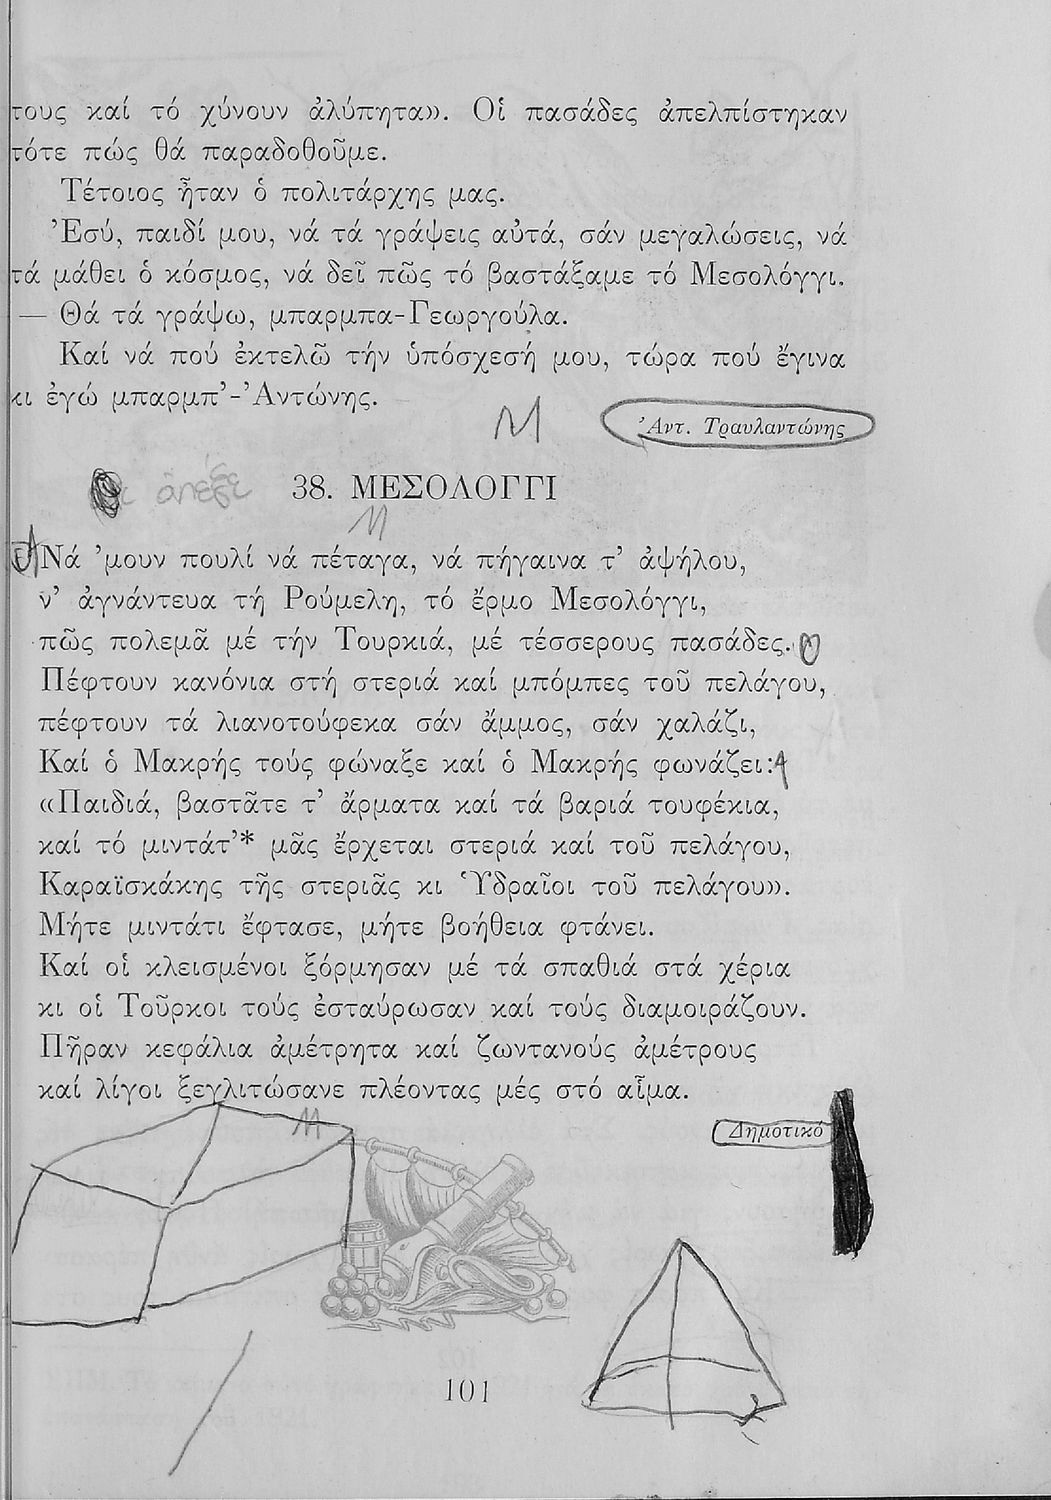 τους καί τό χύνουν ἀλύπητα». Οἱ πασάδες ἀπελπίστηκαν
τότε πώς θά παραδοθοῦμε.
Τέτοιος ἦταν ὁ πολιτάρχης μας.
Ἐσύ, παιδί μου, νά τά γράψεις αὐτά, σάν μεγαλώσεις, νά
τά μάθει ὁ κόσμος, νά δεῖ πῶς τό βαστάξαμε τό Μεσολόγγι.
— Θά τά γράψω, μπαρμπα-Γεωργούλα.
Καί νά πού ἐκτελῶ τήν ὑπόσχεσή μου, τώρα πού ἔγινα
κι ἐγώ μπαρμπ’-Ἀντώνης.
Μ
Ἀντ. Τραυλαντώνης
38. ΜΕΣΟΛΟΓΓΙ
Νά ’μουν πουλί νά πέταγα, νά πήγαινα τ’ ἀψήλου,
ν’ ἀγνάντευα τή Ρούμελη, τό ἔρμο Μεσολόγγι,
πῶς πολεμᾶ μέ τήν Τουρκιά, μέ τέσσερους πασάδες.
Πέφτουν κανόνια στή στεριά καί μπόμπες τοῦ πελάγου,
πέφτουν τά λιανοτούφεκα σάν ἄμμος, σάν χαλάζι,
Καί ὁ Μακρής τούς φώναξε καί ὁ Μακρής φωνάζει:
«Παιδιά, βαστᾶτε τ’ ἄρματα καί τά βαριά τουφέκια,
καί τό μιντάτ’* μᾶς ἔρχεται στεριά καί τοῦ πελάγου,
Καραϊσκάκης τῆς στεριᾶς κι Ὑδραῖοι τοῦ πελάγου».
Μήτε μιντάτι ἔφτασε, μήτε βοήθεια φτάνει.
Καί οἱ κλεισμένοι ξόρμησαν μέ τά σπαθιά στά χέρια
κι οἱ Τοῦρκοι τούς ἐσταύρωσαν καί τούς διαμοιράζουν.
Πῆραν κεφάλια ἀμέτρητα καί ζωντανούς ἀμέτρους
καί λίγοι ξεγλιτώσανε πλέοντας μές στό αἷμα.
Δημοτικό
101